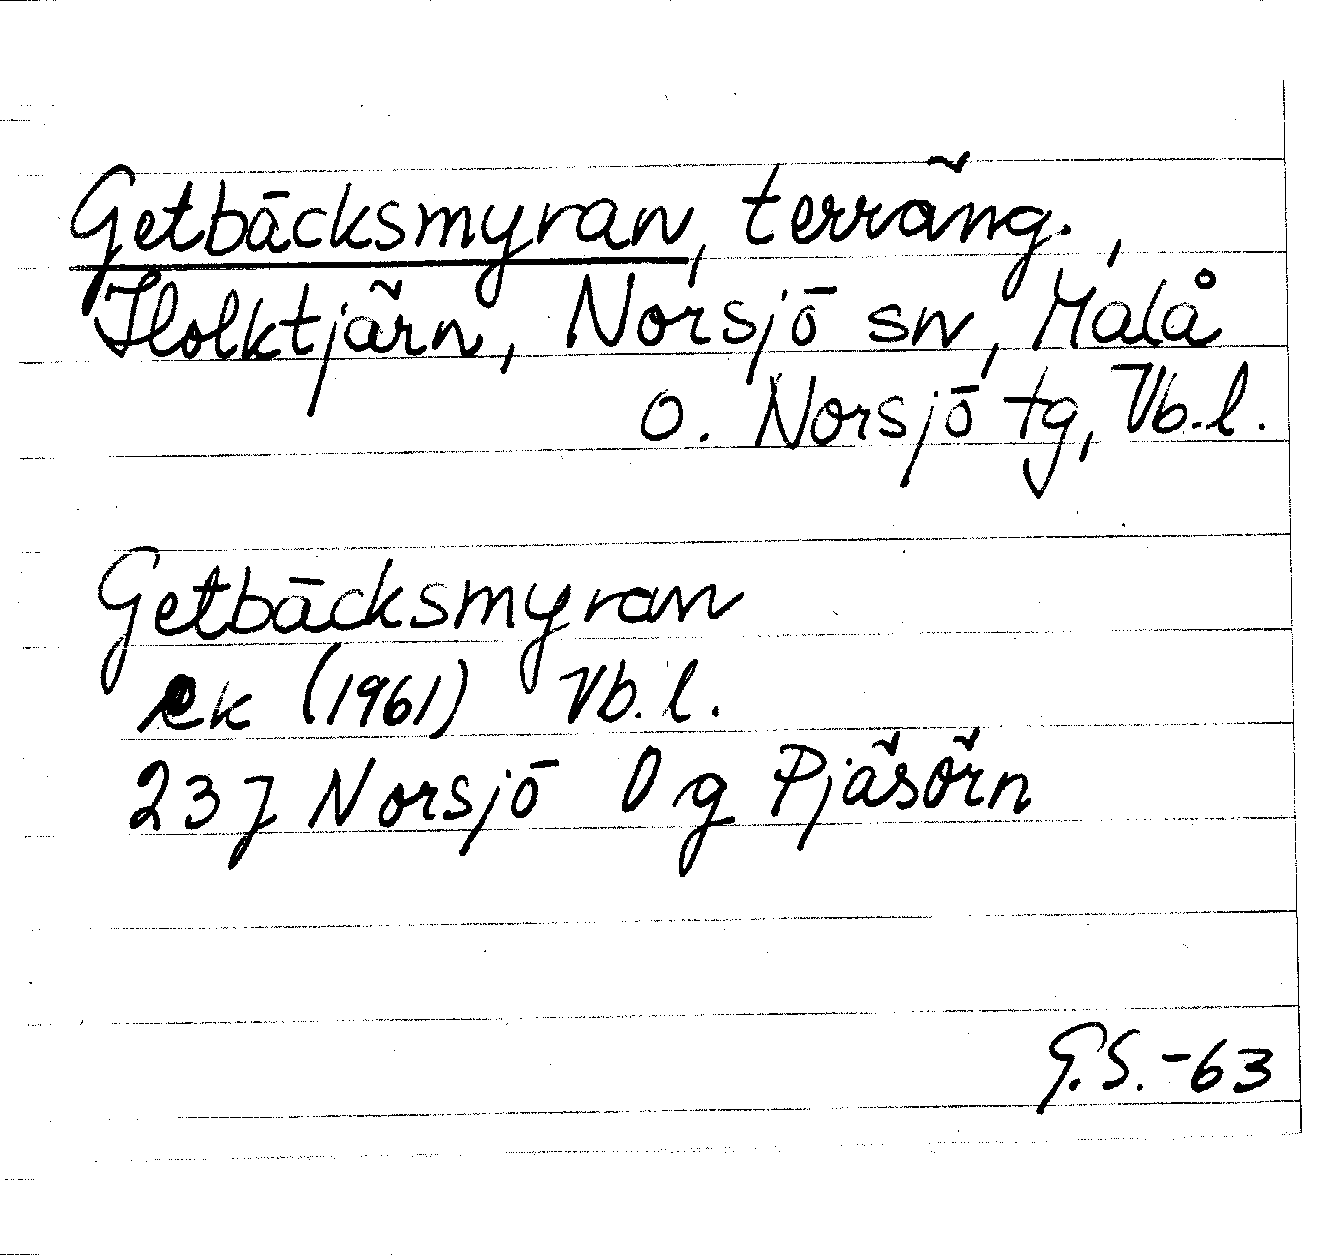 Getbäcksmyran, terräng.,
Holktjärn, Norsjö sn, Malå
o. Norsjö tg, Vb.l.
Getbäcksmyran
ek (1961) Vb.l.
23J Norsjö Og Pjäsörn
G.S.-63